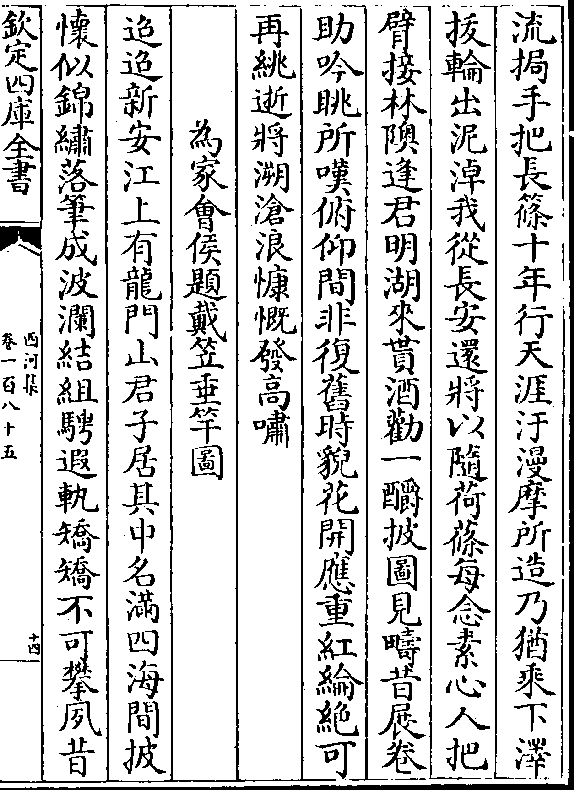 流挶手把長篠十年行天涯汙漫摩所造乃猶乘下澤
拔輪出泥淖我從長安還將以隨荷蓧每念素心人把
臂接林隩逢君明湖來貰酒勸一釂披圖見疇昔展卷
助吟眺所嘆俯仰間非復舊時貌花開應重紅綸絕可
再絖逝將溯滄浪慷慨發高嘯
為家會侯題戴笠垂竿圖
迢迢新安江上有龍門山君子居其中名滿四海間披
懷似錦繡落筆成波瀾結組騁遐軌矯矯不可攀夙昔
欽定四庫全書
西河集
卷一百八十五
十四